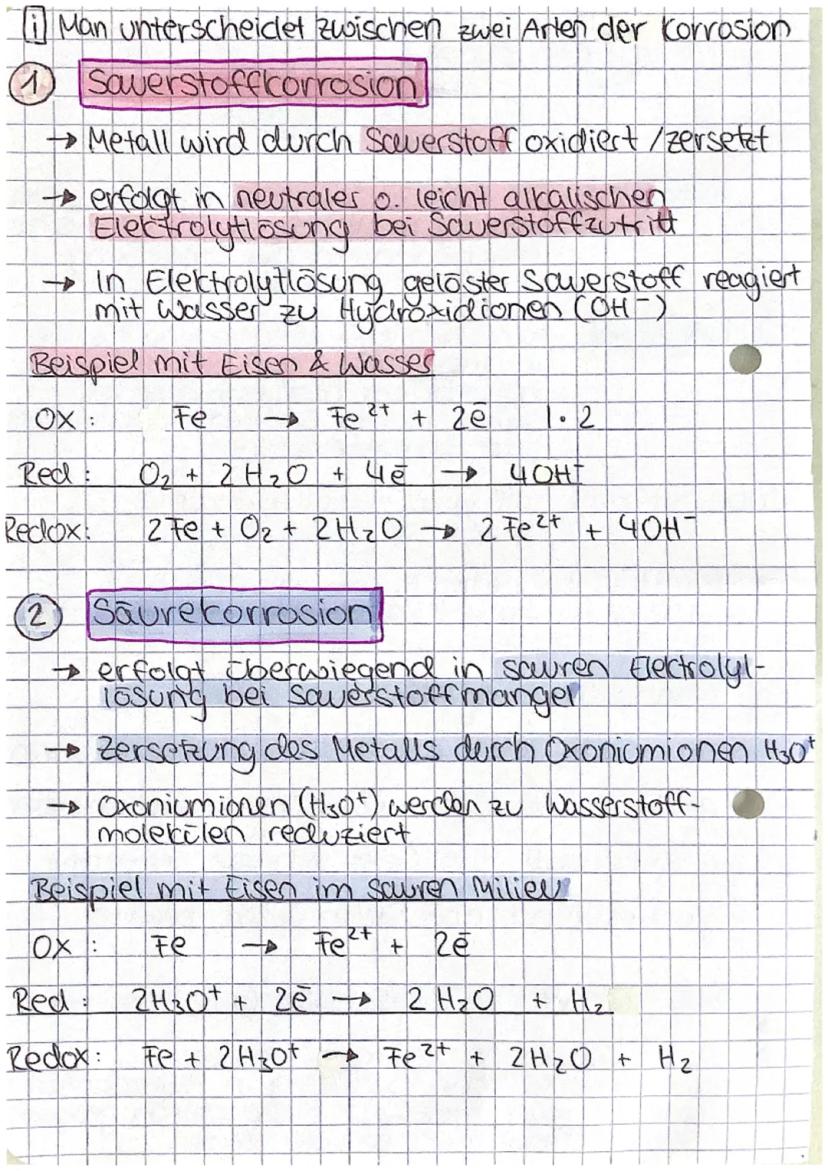 i Man unterscheidet zwischen zwei Arten der Korrosion
1 Sauerstoffkorrosion
→ Metall wird durch Sauerstoff oxidiert / zersetzt
→ erfolgt in neutrales o. leicht alkalischen
Elektrolytlösung bei Sauerstoffzutritt
→ In Elektrolytlösung gelöster Sauerstoff reagiert
mit Wasser zu Hydroxidionen (OH⁻)
Beispiel mit Eisen & Wasser
OX : Fe → Fe²⁺ + 2e⁻ |·2
Red : O₂ + 2H₂O + 4e⁻ → 4OH⁻
Redox: 2Fe + O₂ + 2H₂O → 2Fe²⁺ + 4OH⁻
2 Säurekorrosion
→ erfolgt überwiegend in sauren Elektrolyl-
lösung bei Sauerstoffmangel
→ Zersetzung des Metalls durch Oxoniumionen H₃O⁺
→ Oxoniumionen (H₃O⁺) werden zu Wasserstoff-
molekülen reduziert
Beispiel mit Eisen im sauren Milieu
OX : Fe → Fe²⁺ + 2e⁻
Red : 2H₃O⁺ + 2e⁻ → 2H₂O + H₂
Redox: Fe + 2H₃O⁺ → Fe²⁺ + 2H₂O + H₂